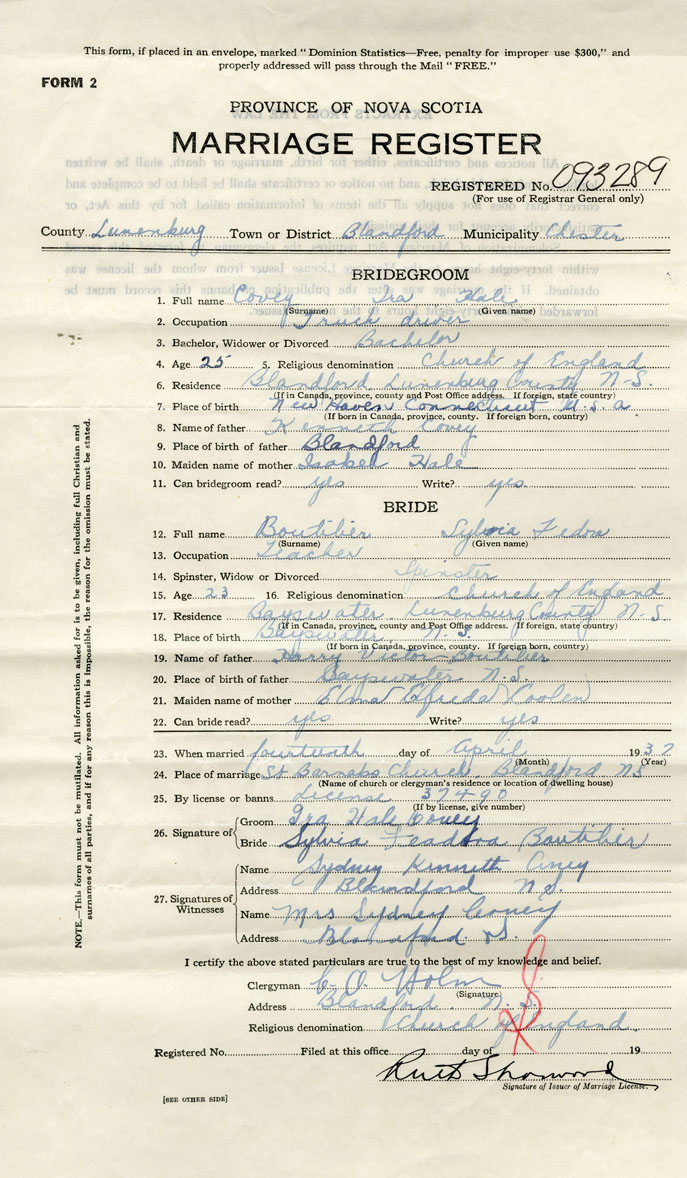 This form, if placed in an envelope, marked "Dominion Statistics—Free, penalty for improper use $300," and
properly addressed will pass through the Mail "FREE."
FORM 2
PROVINCE OF NOVA SCOTIA
MARRIAGE REGISTER
REGISTERED No. 093289
(For use of Registrar General only)
County Lunenburg Town or District Blandford Municipality Chester
BRIDEGROOM
1. Full name Covey Ira Hale
(Surname) (Given name)
2. Occupation Truck driver
3. Bachelor, Widower or Divorced Bachelor
4. Age 25 5. Religious denomination Church of England
6. Residence Blandford Lunenburg County N-S.
(If in Canada, province, county and Post Office address. If foreign, state country)
7. Place of birth New Haven Connecticut U.S.a
(If born in Canada, province, county. If foreign born, country)
8. Name of father Kenneth Covey
9. Place of birth of father Blandford
10. Maiden name of mother Isabel Hale
11. Can bridegroom read? yes Write? yes
BRIDE
12. Full name Boutilier Sylvia Fedora
(Surname) (Given name)
13. Occupation Teacher
14. Spinster, Widow or Divorced Spinster
15. Age 23 16. Religious denomination Church of England
17. Residence Bayswater Lunenburg County N-S.
(If in Canada, province, county and Post Office address. If foreign, state country)
18. Place of birth Bayswater N.S.
(If born in Canada, province, county. If foreign born, country)
19. Name of father Harry Victor Boutilier
20. Place of birth of father Bayswater N.S.
21. Maiden name of mother Elma Alfreda Coolen
22. Can bride read? yes Write? yes
23. When married fourteenth day of April 1937
(Month) (Year)
24. Place of marriage St Barnabs Church, Blandford NS
(Name of church or clergyman's residence or location of dwelling house)
25. By license or banns License 37490
(If by license, give number)
26. Signature of { Groom Ira Hale Covey
Bride Sylvia Feadora Boutilier
27. Signatures of Witnesses { Name Sydney Kenneth Covey
Address Blandford N.S.
Name Mrs Sydney Covey
Address Blandford N.S.
I certify the above stated particulars are true to the best of my knowledge and belief.
Clergyman C. O. Holm
(Signature)
Address Blandford. N.S.
Religious denomination Church of England
Registered No. Filed at this office day of 19
Ruth
Signature of Issuer of Marriage License.
[SEE OTHER SIDE]
NOTE.—This form must not be mutilated. All information asked for is to be given, including full Christian and
surnames of all parties, and if for any reason this is impossible, the reason for the omission must be stated.